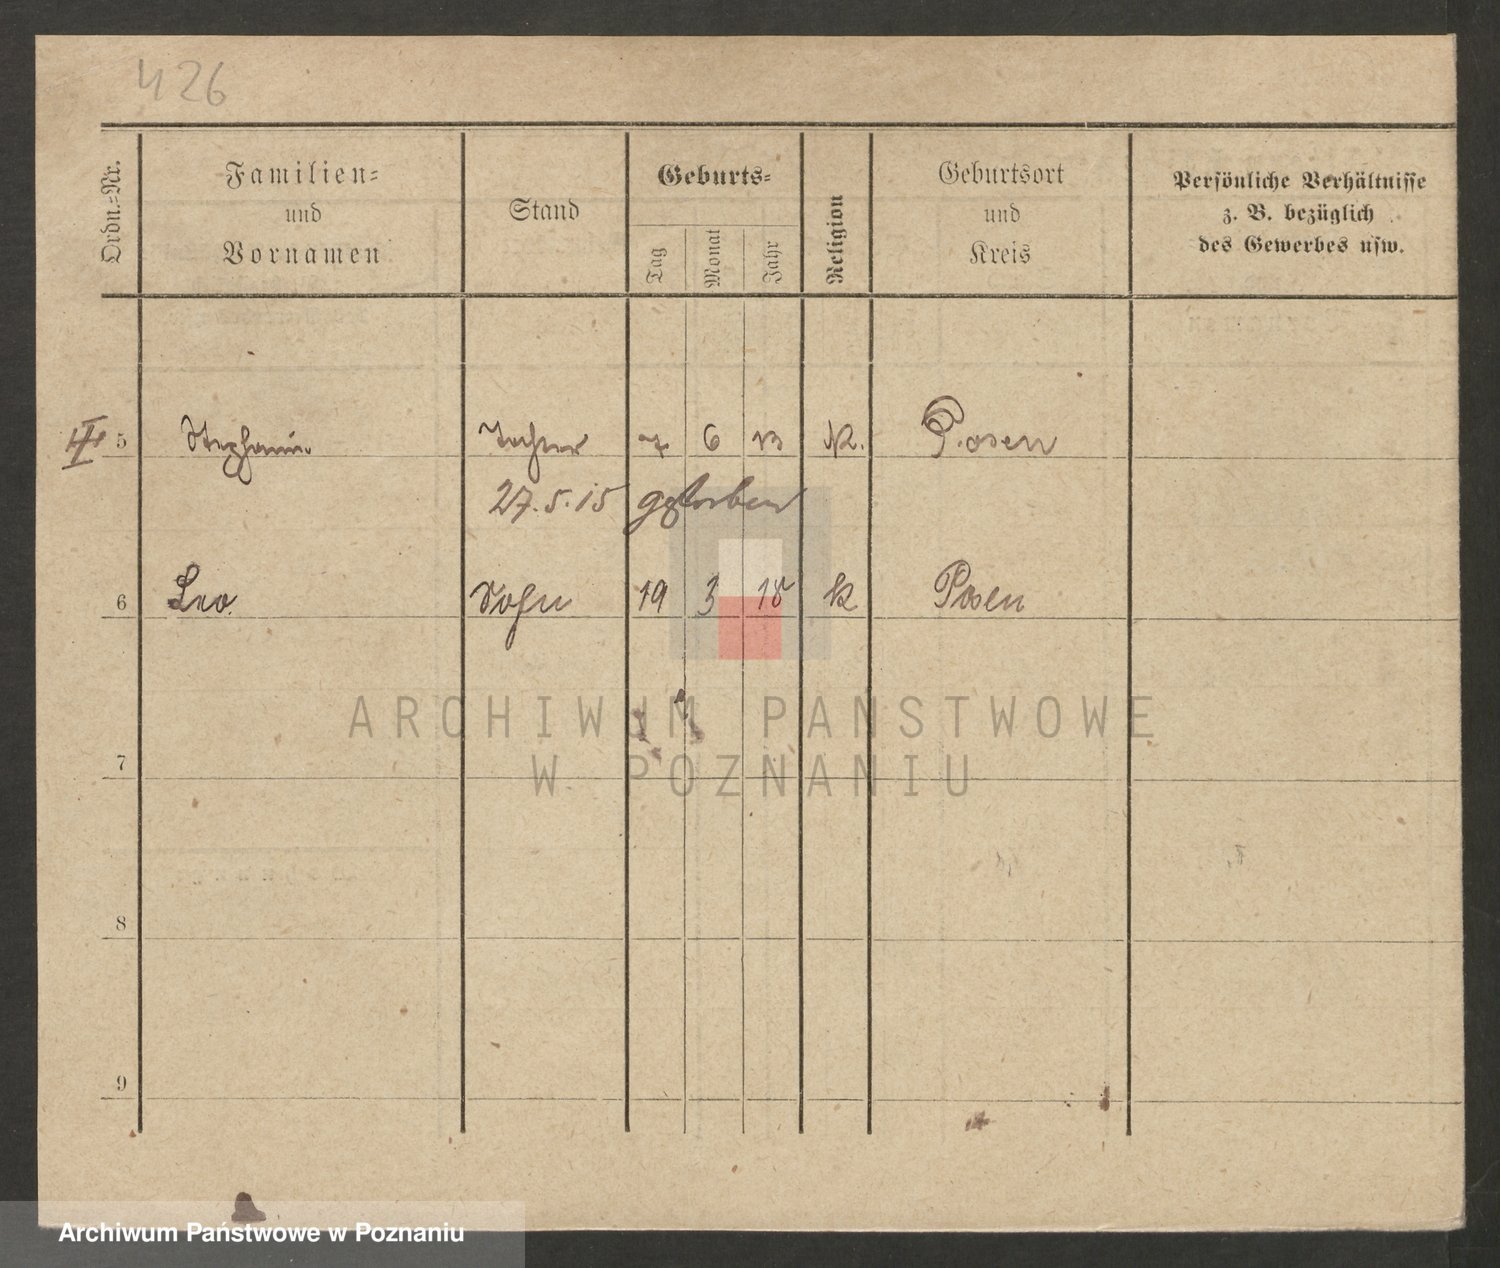 426
Ordn.=Nr.
Familien=
und
Vornamen
Stand
Geburts=
Tag
Monat
Jahr
Religion
Geburtsort
und
Kreis
Persönliche Verhältnisse
z. B. bezüglich
des Gewerbes usw.
5 Stephanie Tochter 7. 6 13 K. Posen
27.5.15 gestorben
6 Leo Sohn 19 3 18 K Posen
7
8
9
ARCHIWUM PAŃSTWOWE
W POZNANIU
Archiwum Państwowe w Poznaniu